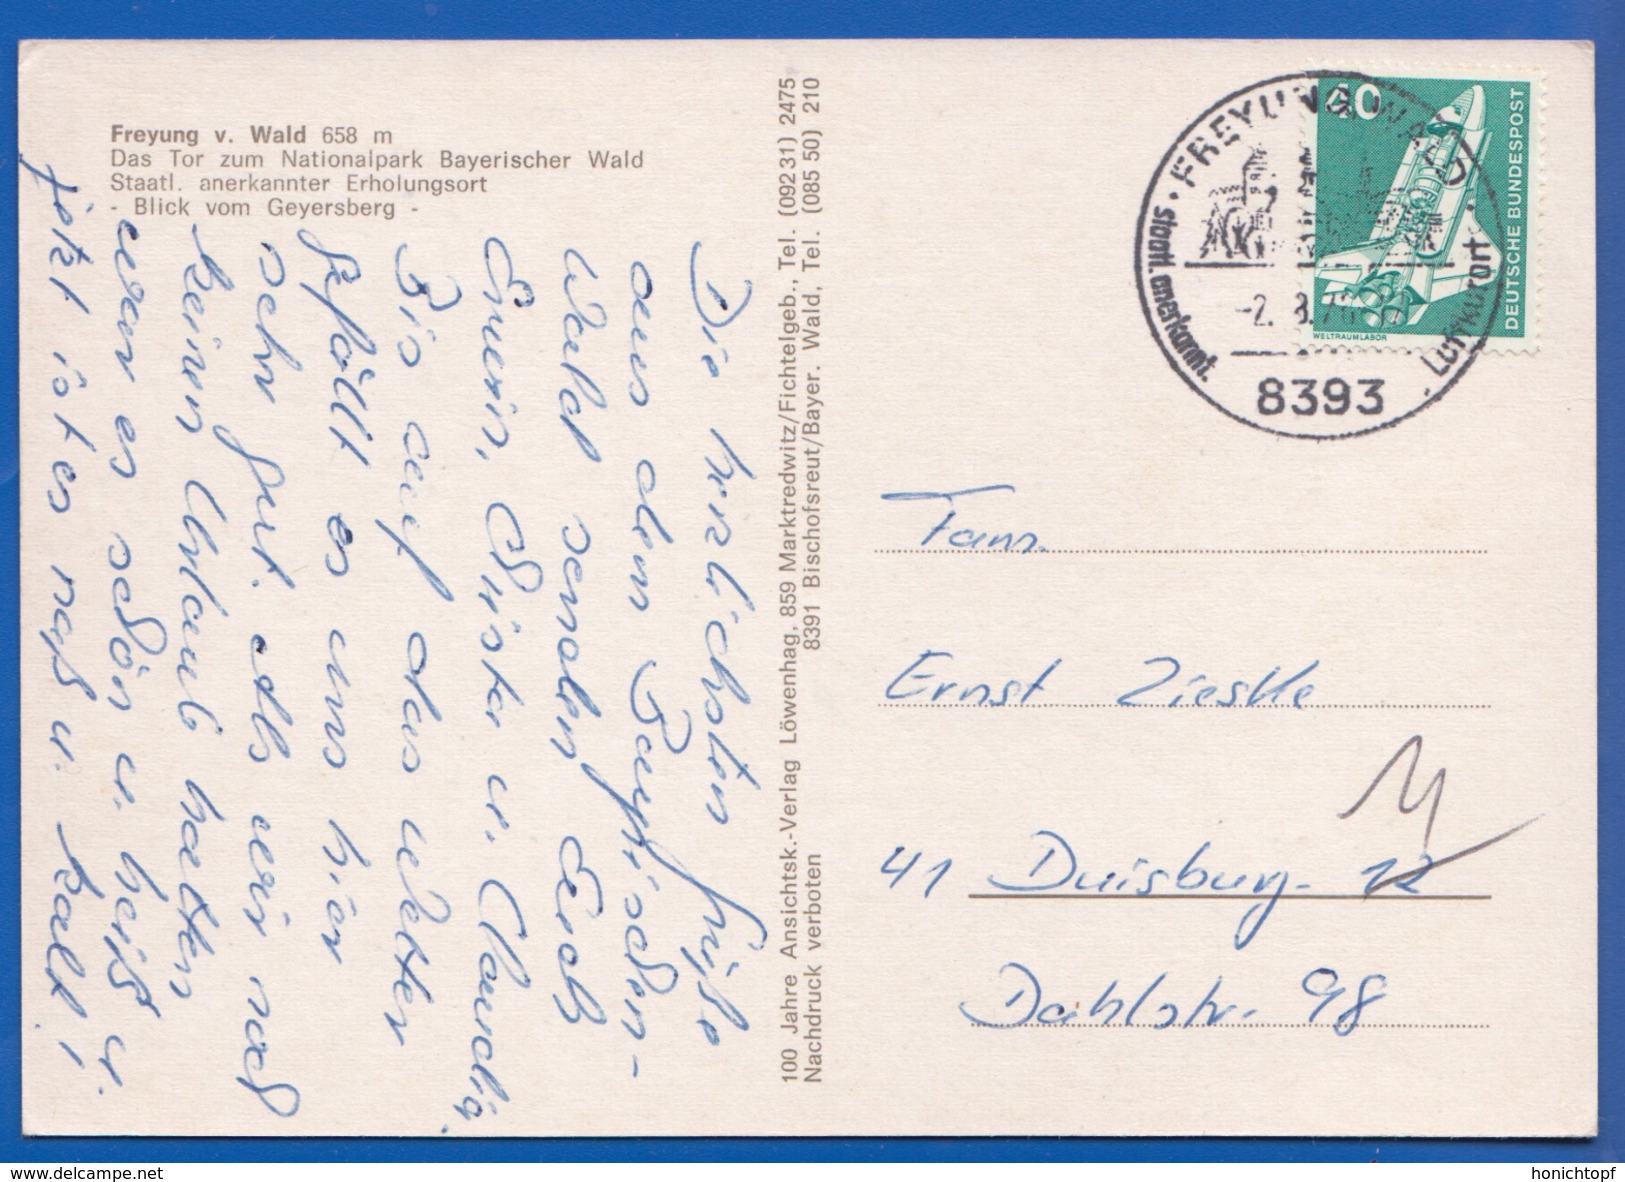 Freyung v. Wald 658 m
Das Tor zum Nationalpark Bayerischer Wald
Staatl. anerkannter Erholungsort
- Blick vom Geyersberg -
Die herzlichsten Grüße
aus dem Bayrischen-
Wald senden Euch
Erwin, Christa u. Claudia.
Bis auf das Wetter
gefällt es uns hier
sehr gut. Als wir noch
keinen Urlaub hatten
war es schön u. heiß u.
jetzt ist es naß u. kalt!
100 Jahre Ansichtsk.-Verlag Löwenhag, 859 Marktredwitz/Fichtelgeb., Tel. (092 31) 2475
Nachdruck verboten 8391 Bischofsreut/Bayer. Wald, Tel. (085 50) 210
FREYUNG
staatl. anerkannt. Luftkurort
8393
40
DEUTSCHE BUNDESPOST
WELTRAUMLABOR
Fam.
Ernst Zieske
41 Duisburg-12
Dahlstr. 98
www.delcampe.net
honichtopf